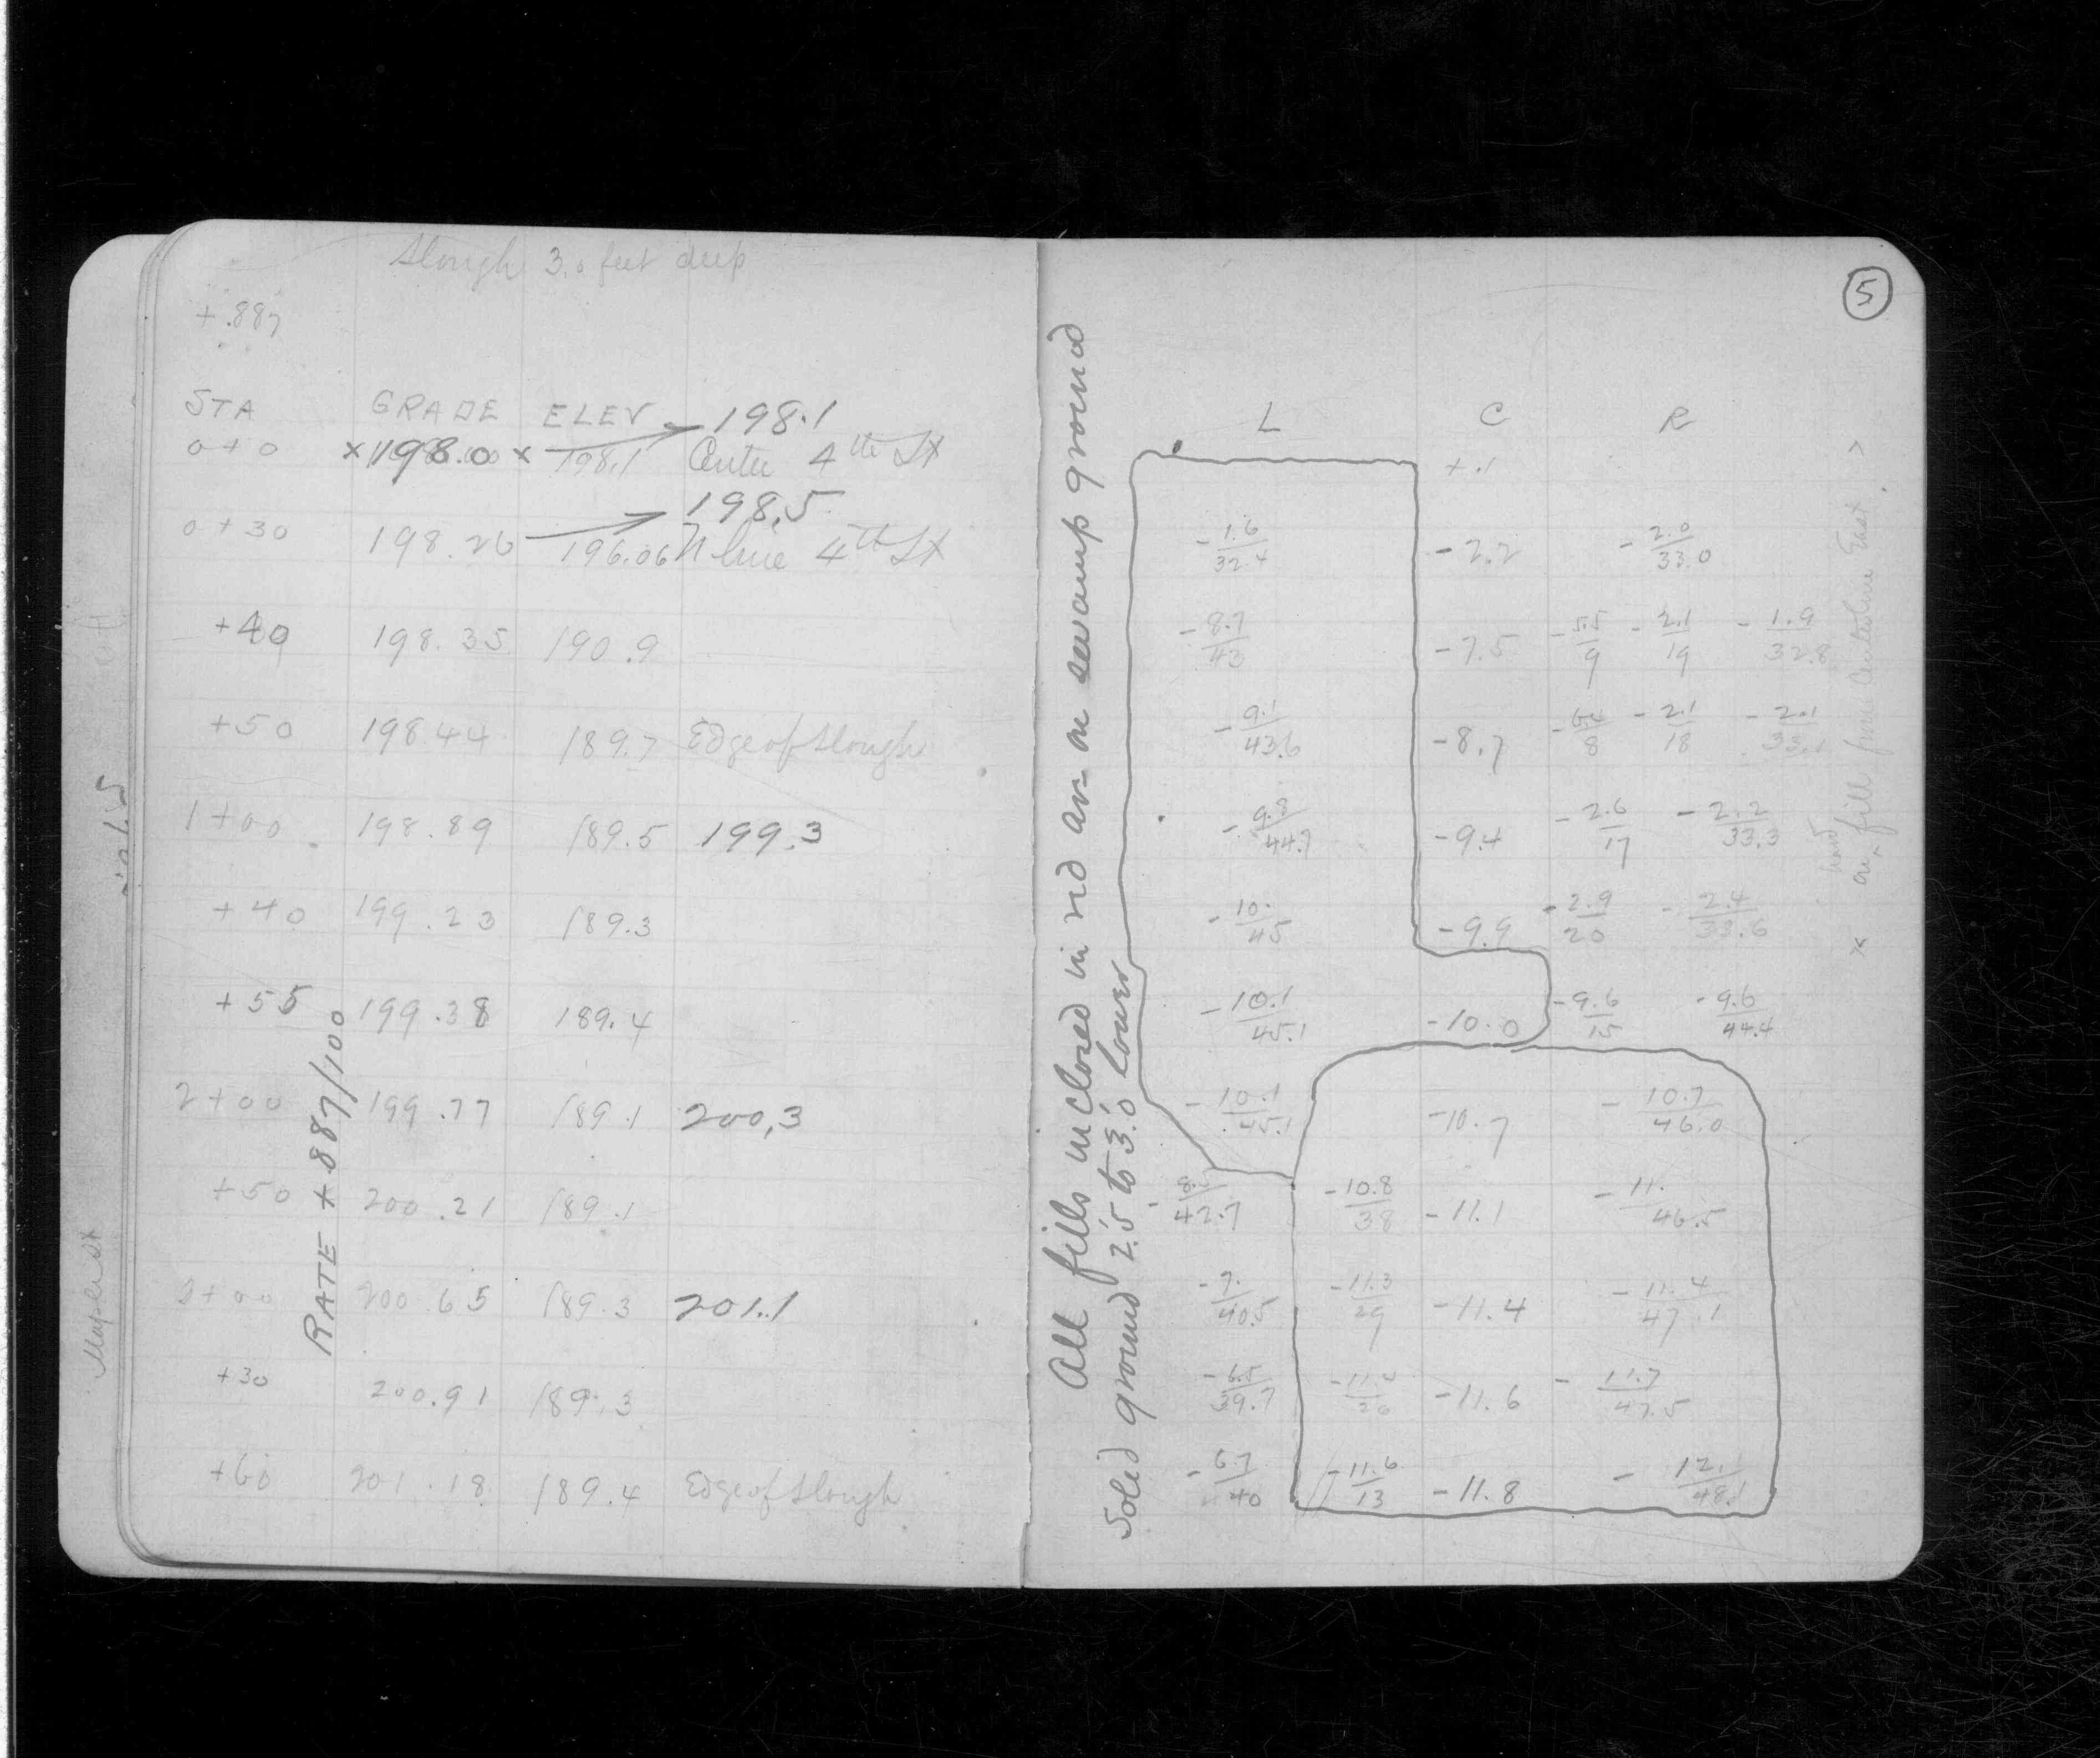 Slough 3.0 feet deep
+.887
STA GRADE ELEV 198.1
0+0 ×198.0× 198.1 Center 4th St
198.5
0+30 198.26 196.06 N line 4th St
+40 198.35 190.9
+50 198.44 189.7 Edge of Slough
1+00 198.89 189.5 199.3
+40 199.23 189.3
+55 199.38 189.4
2+00 199.77 189.1 200.3
+50 200.21 189.1
3+00 200.65 189.3 201.1
+30 200.91 189.3
+60 201.18 189.4 Edge of Slough
RATE +.887/100
5
All fills inclosed in red are on swamp ground
Solid ground 2.5 to 3.0 lower
L C R
+.1
-1.6/32.4 -2.2 -2.0/33.0
-8.7/43 -7.5 -5.5/9 -2.1/19 -1.9/32.8
-9.1/43.6 -8.7 /8 -2.1/18 -2.1/33.1
-9.8/44.7 -9.4 -2.6/17 -2.2/33.3
-10./45 -9.9 -2.9/20 -2.4/33.6
-10.1/45.1 -10.0 -9.6/15 -9.6/44.4
-10.1/45.1 -10.7 -10.7/46.0
/42.7 -10.8/38 -11.1 -11./46.5
-7./40.5 -11.3/29 -11.4 -11.4/47.1
-6.5/39.7 /26 -11.6 -11.7/47.5
-6.7/40 -11.6/13 -11.8 -12.1/48.1
on hard fill from Centerline East